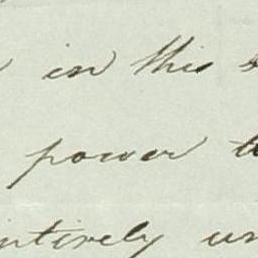 in this
power
intirely un